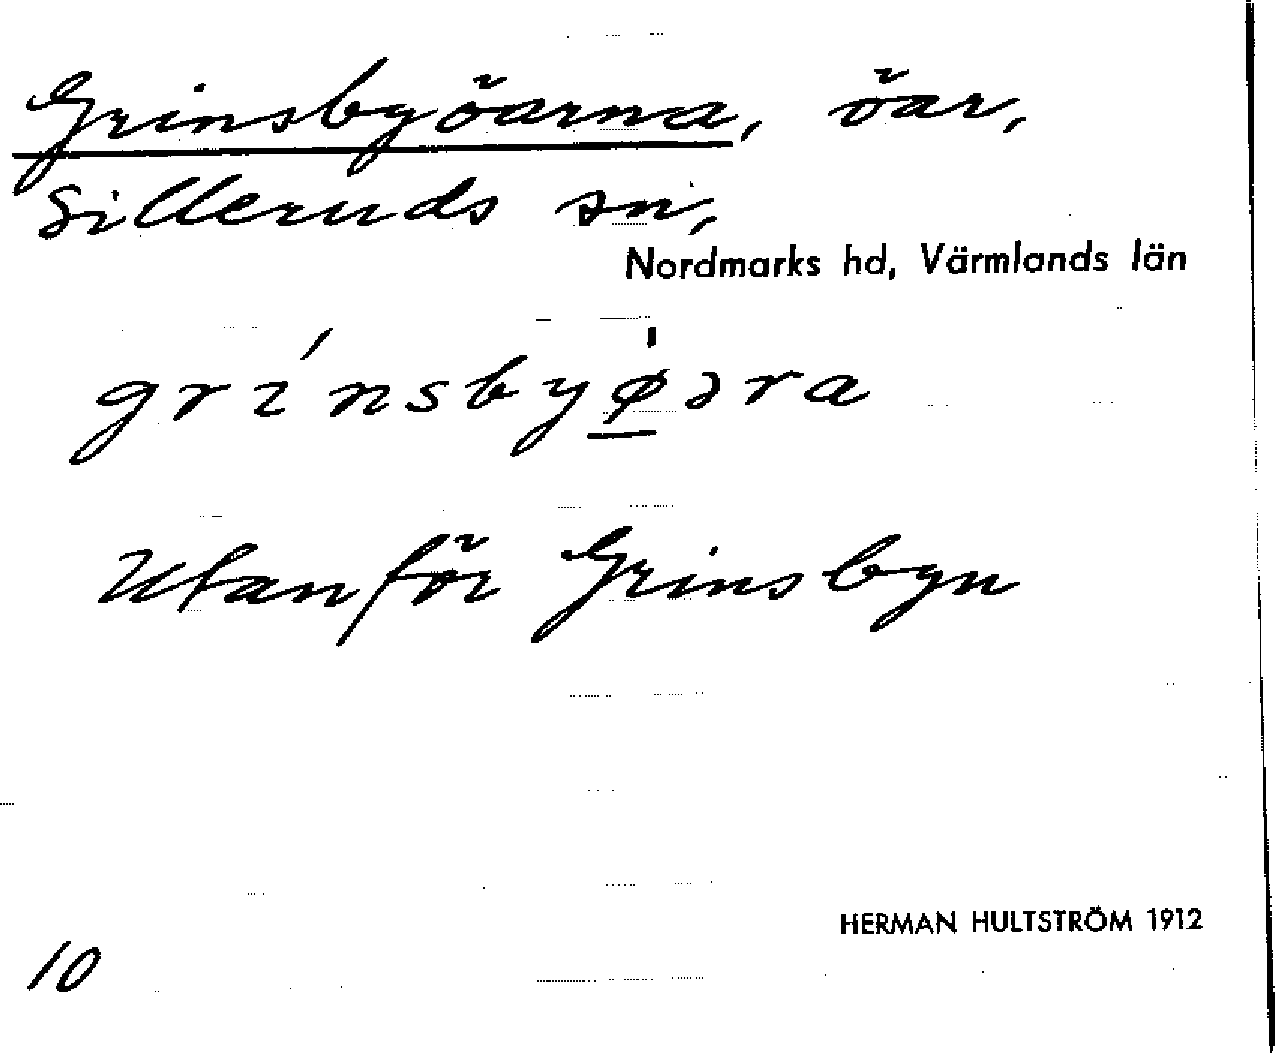 Grinsbyöarna, öar,
Silleruds sn,
Nordmarks hd, Värmlands län
grı́nsbyø̱̍ əra
Utanför Grinsbyn
HERMAN HULTSTRÖM 1912
10